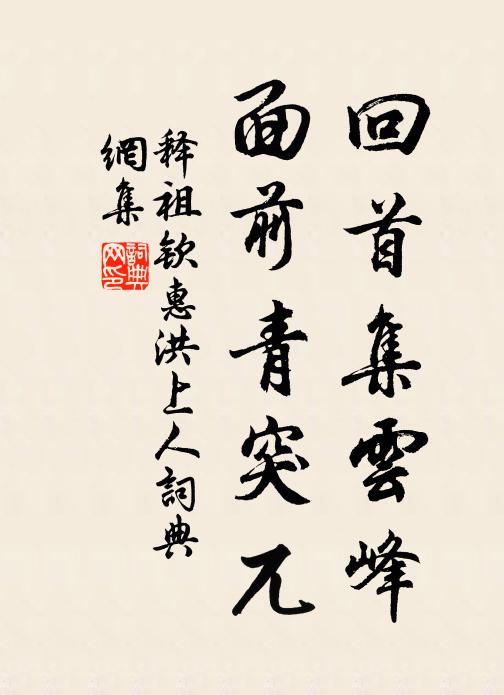 回首集雲峰
面前青突兀
释祖钦惠洪上人詞典
網集
詞典網印